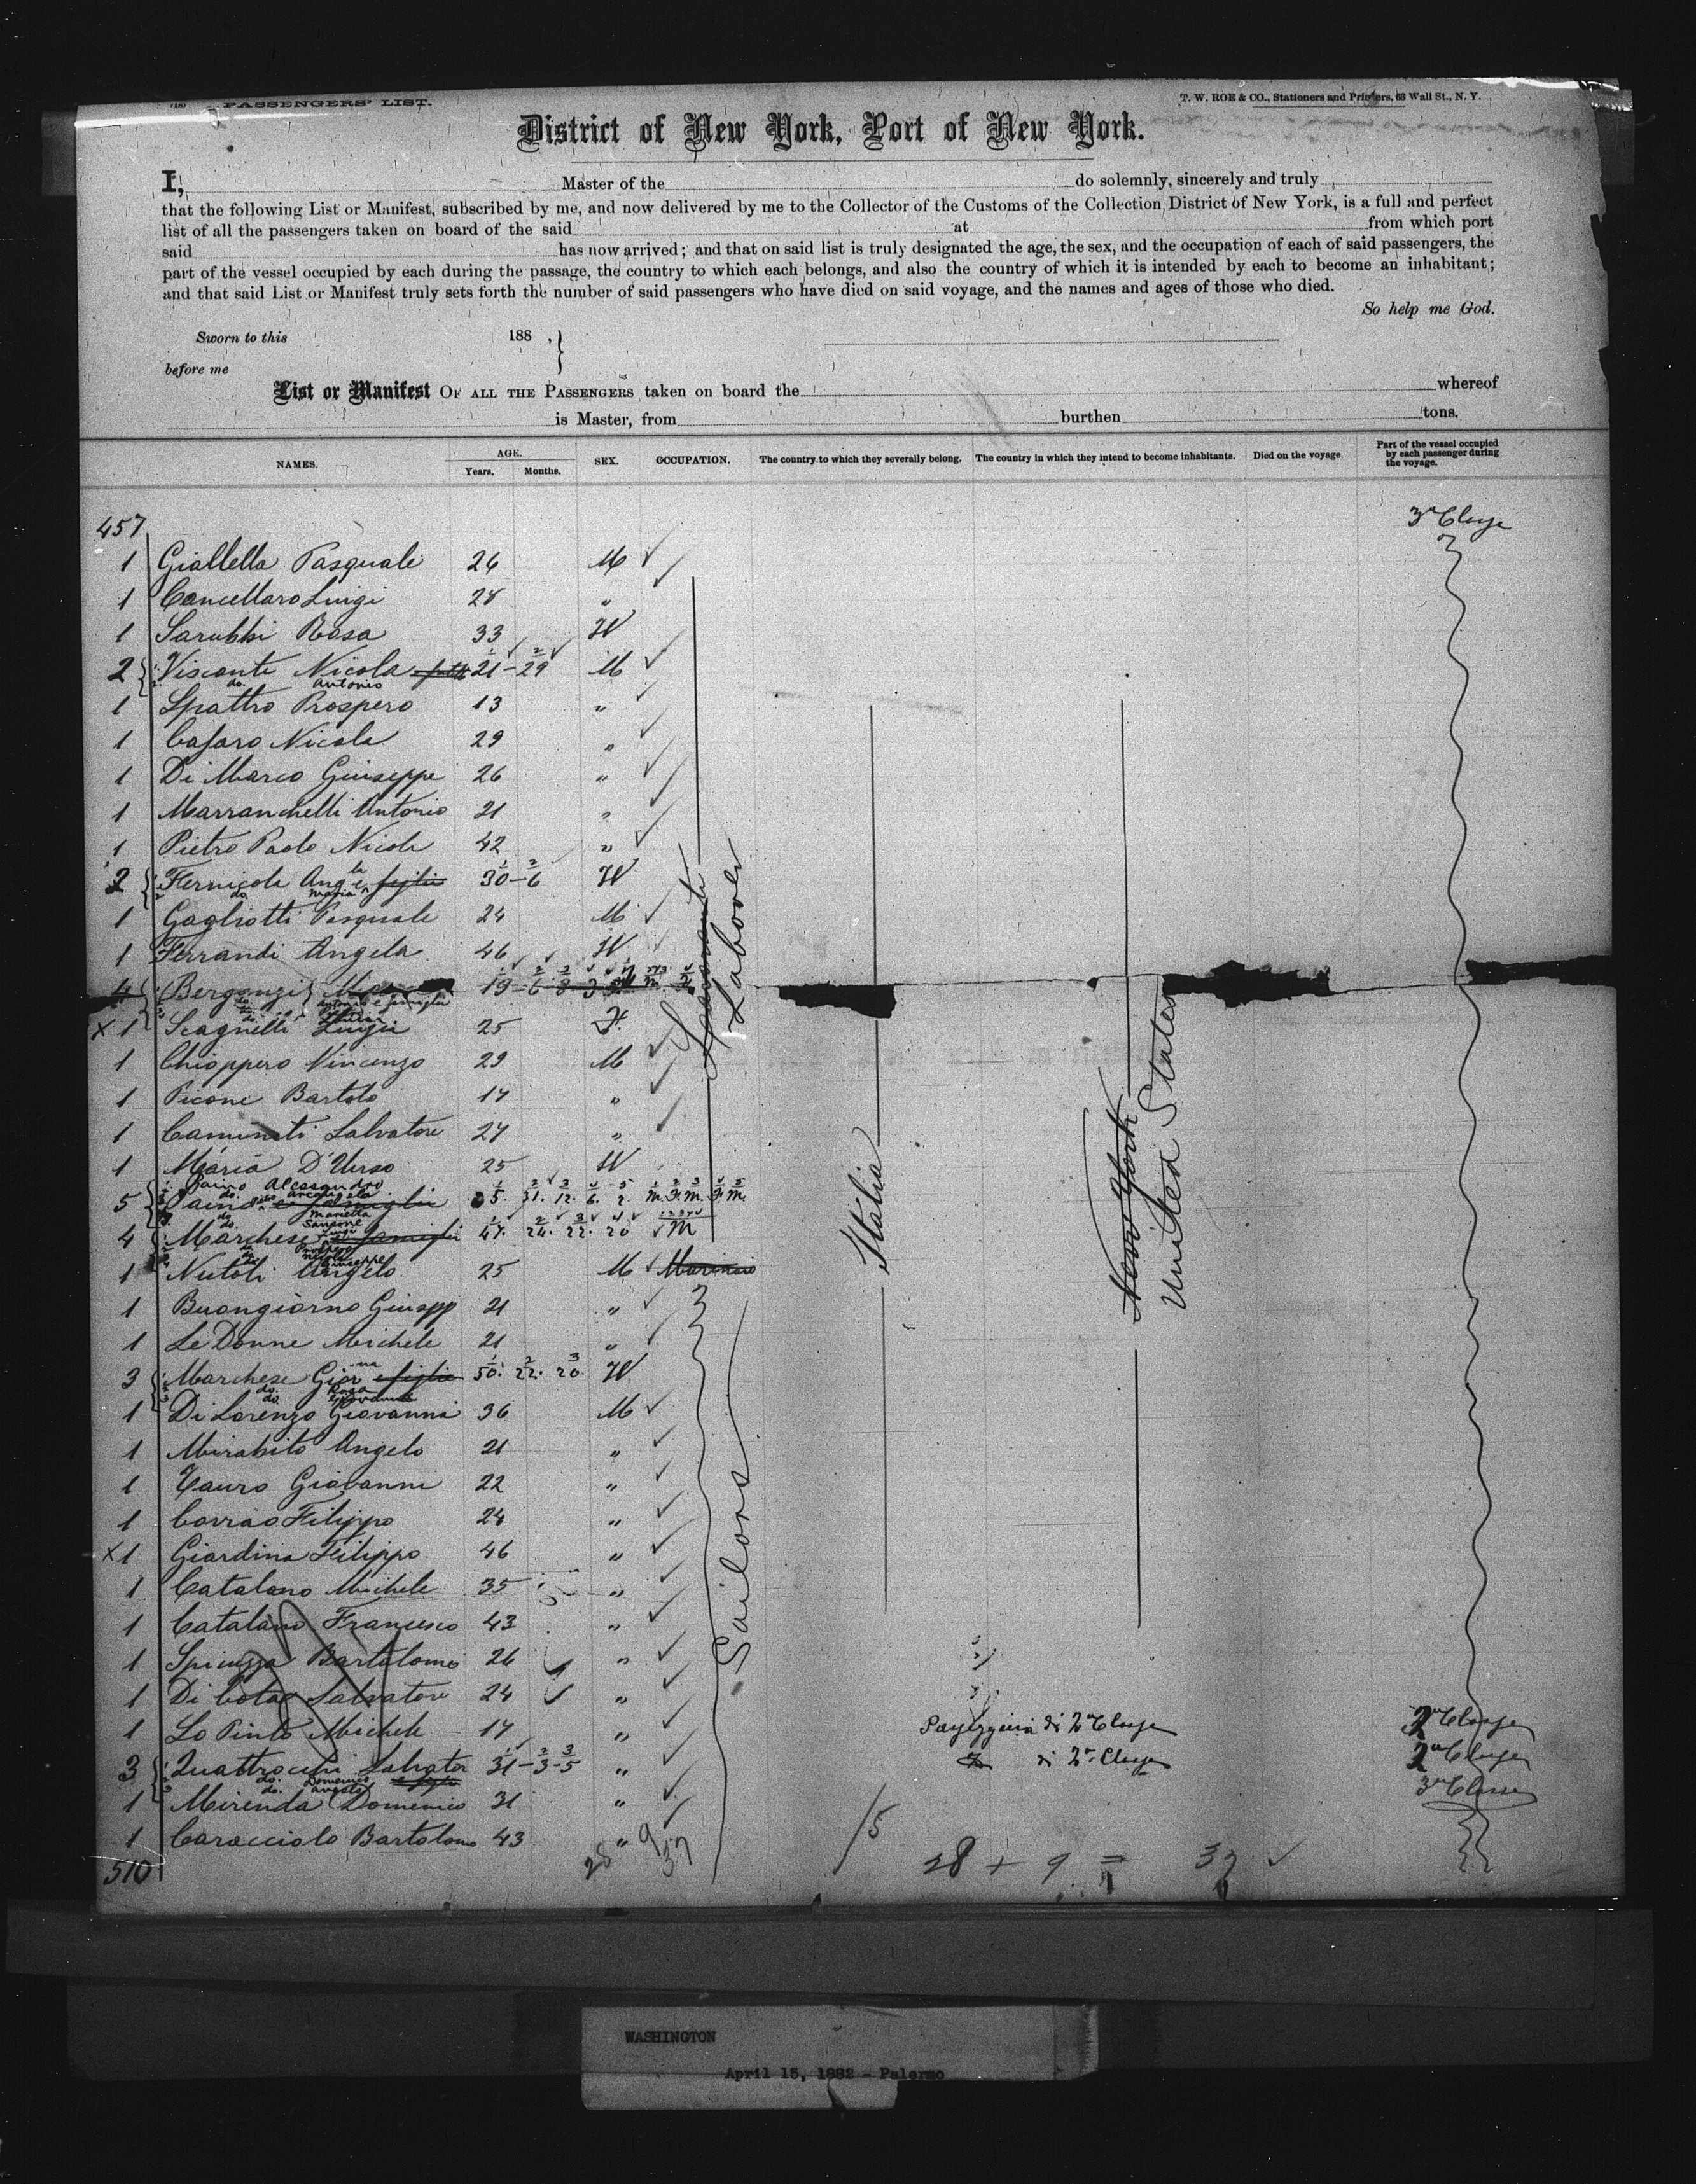 PASSENGERS' LIST.
T. W. ROE & CO., Stationers and Printers, 63 Wall St., N. Y.
District of New York, Port of New York.
I, Master of the do solemnly, sincerely and truly
that the following List or Manifest, subscribed by me, and now delivered by me to the Collector of the Customs of the Collection District of New York, is a full and perfect
list of all the passengers taken on board of the said at from which port
said has now arrived; and that on said list is truly designated the age, the sex, and the occupation of each of said passengers, the
part of the vessel occupied by each during the passage, the country to which each belongs, and also the country of which it is intended by each to become an inhabitant;
and that said List or Manifest truly sets forth the number of said passengers who have died on said voyage, and the names and ages of those who died.
So help me God.
Sworn to this 188 ,
before me
List or Manifest OF ALL THE PASSENGERS taken on board the whereof
is Master, from burthen tons.
NAMES. AGE. Years. Months. SEX. OCCUPATION. The country to which they severally belong. The country in which they intend to become inhabitants. Died on the voyage. Part of the vessel occupied by each passenger during the voyage.
457
1 Giallella Pasquale 26 M
1 Cancellaro Luigi 28 "
1 Sarubbi Rosa 33 W
2 Visconti Nicola 21-29 M
do. Antonio
1 Spattro Prospero 13 "
1 Cafaro Nicola 29 "
1 Di Marco Giuseppe 26 "
1 Marranchelli Antonio 21 "
1 Pietro Paolo Nicola 42 "
2 Fernicola Ang la e figlia 30-6 W
do. Maria
1 Gagliotti Pasquale 24 M
1 Ferrandi Angela 46 W
4 Bergangi 19-6 8 3
1 Scagnelli Luigia 25 F.
1 Chioppero Vincenzo 29 M
1 Picone Bartolo 17 "
1 Caminiti Salvatore 27 "
1 Maria D'Urso 25 W
Paino Alessandro
5 Paino e famiglia 5. 31. 12. 6. 2. M. F. M. F. M.
do. Marietta
4 Marchese famiglia 47. 24. 22. 20 M
1 Nutoli Angelo 25 M Marinaro
1 Buongiorno Giuspp 21 "
1 Le Donne Michele 21 "
3 Marchese Giov na e figlie 50. 22. 20 W
do. Rosa
do. Giovanna
1 Di Lorenzo Giovanni 36 M
1 Mirabito Angelo 21 "
1 Tauro Giovanni 22 "
1 Corrao Filippo 24 "
X 1 Giardina Filippo 46 "
1 Catalano Michele 35 "
1 Catalano Francesco 43 "
1 Spinuzza Bartolomeo 26 "
1 Di Cota Salvatore 24 "
1 Lo Pinto Michele 17 "
3 Quattrocchi Salvator 31-3-5 "
do. Domenico
do. Angelo
1 Mirenda Domenico 31 "
1 Caracciolo Bartolomo 43 "
510
Laborer
Sailors
Italia
New York
United States
3a Classe
di 2a Classe
di 2a Classe
2a Classe
2a Classe
3a Classe
28 9 37
15
28 + 9 = 37
WASHINGTON
April 15, 1882 - Palermo